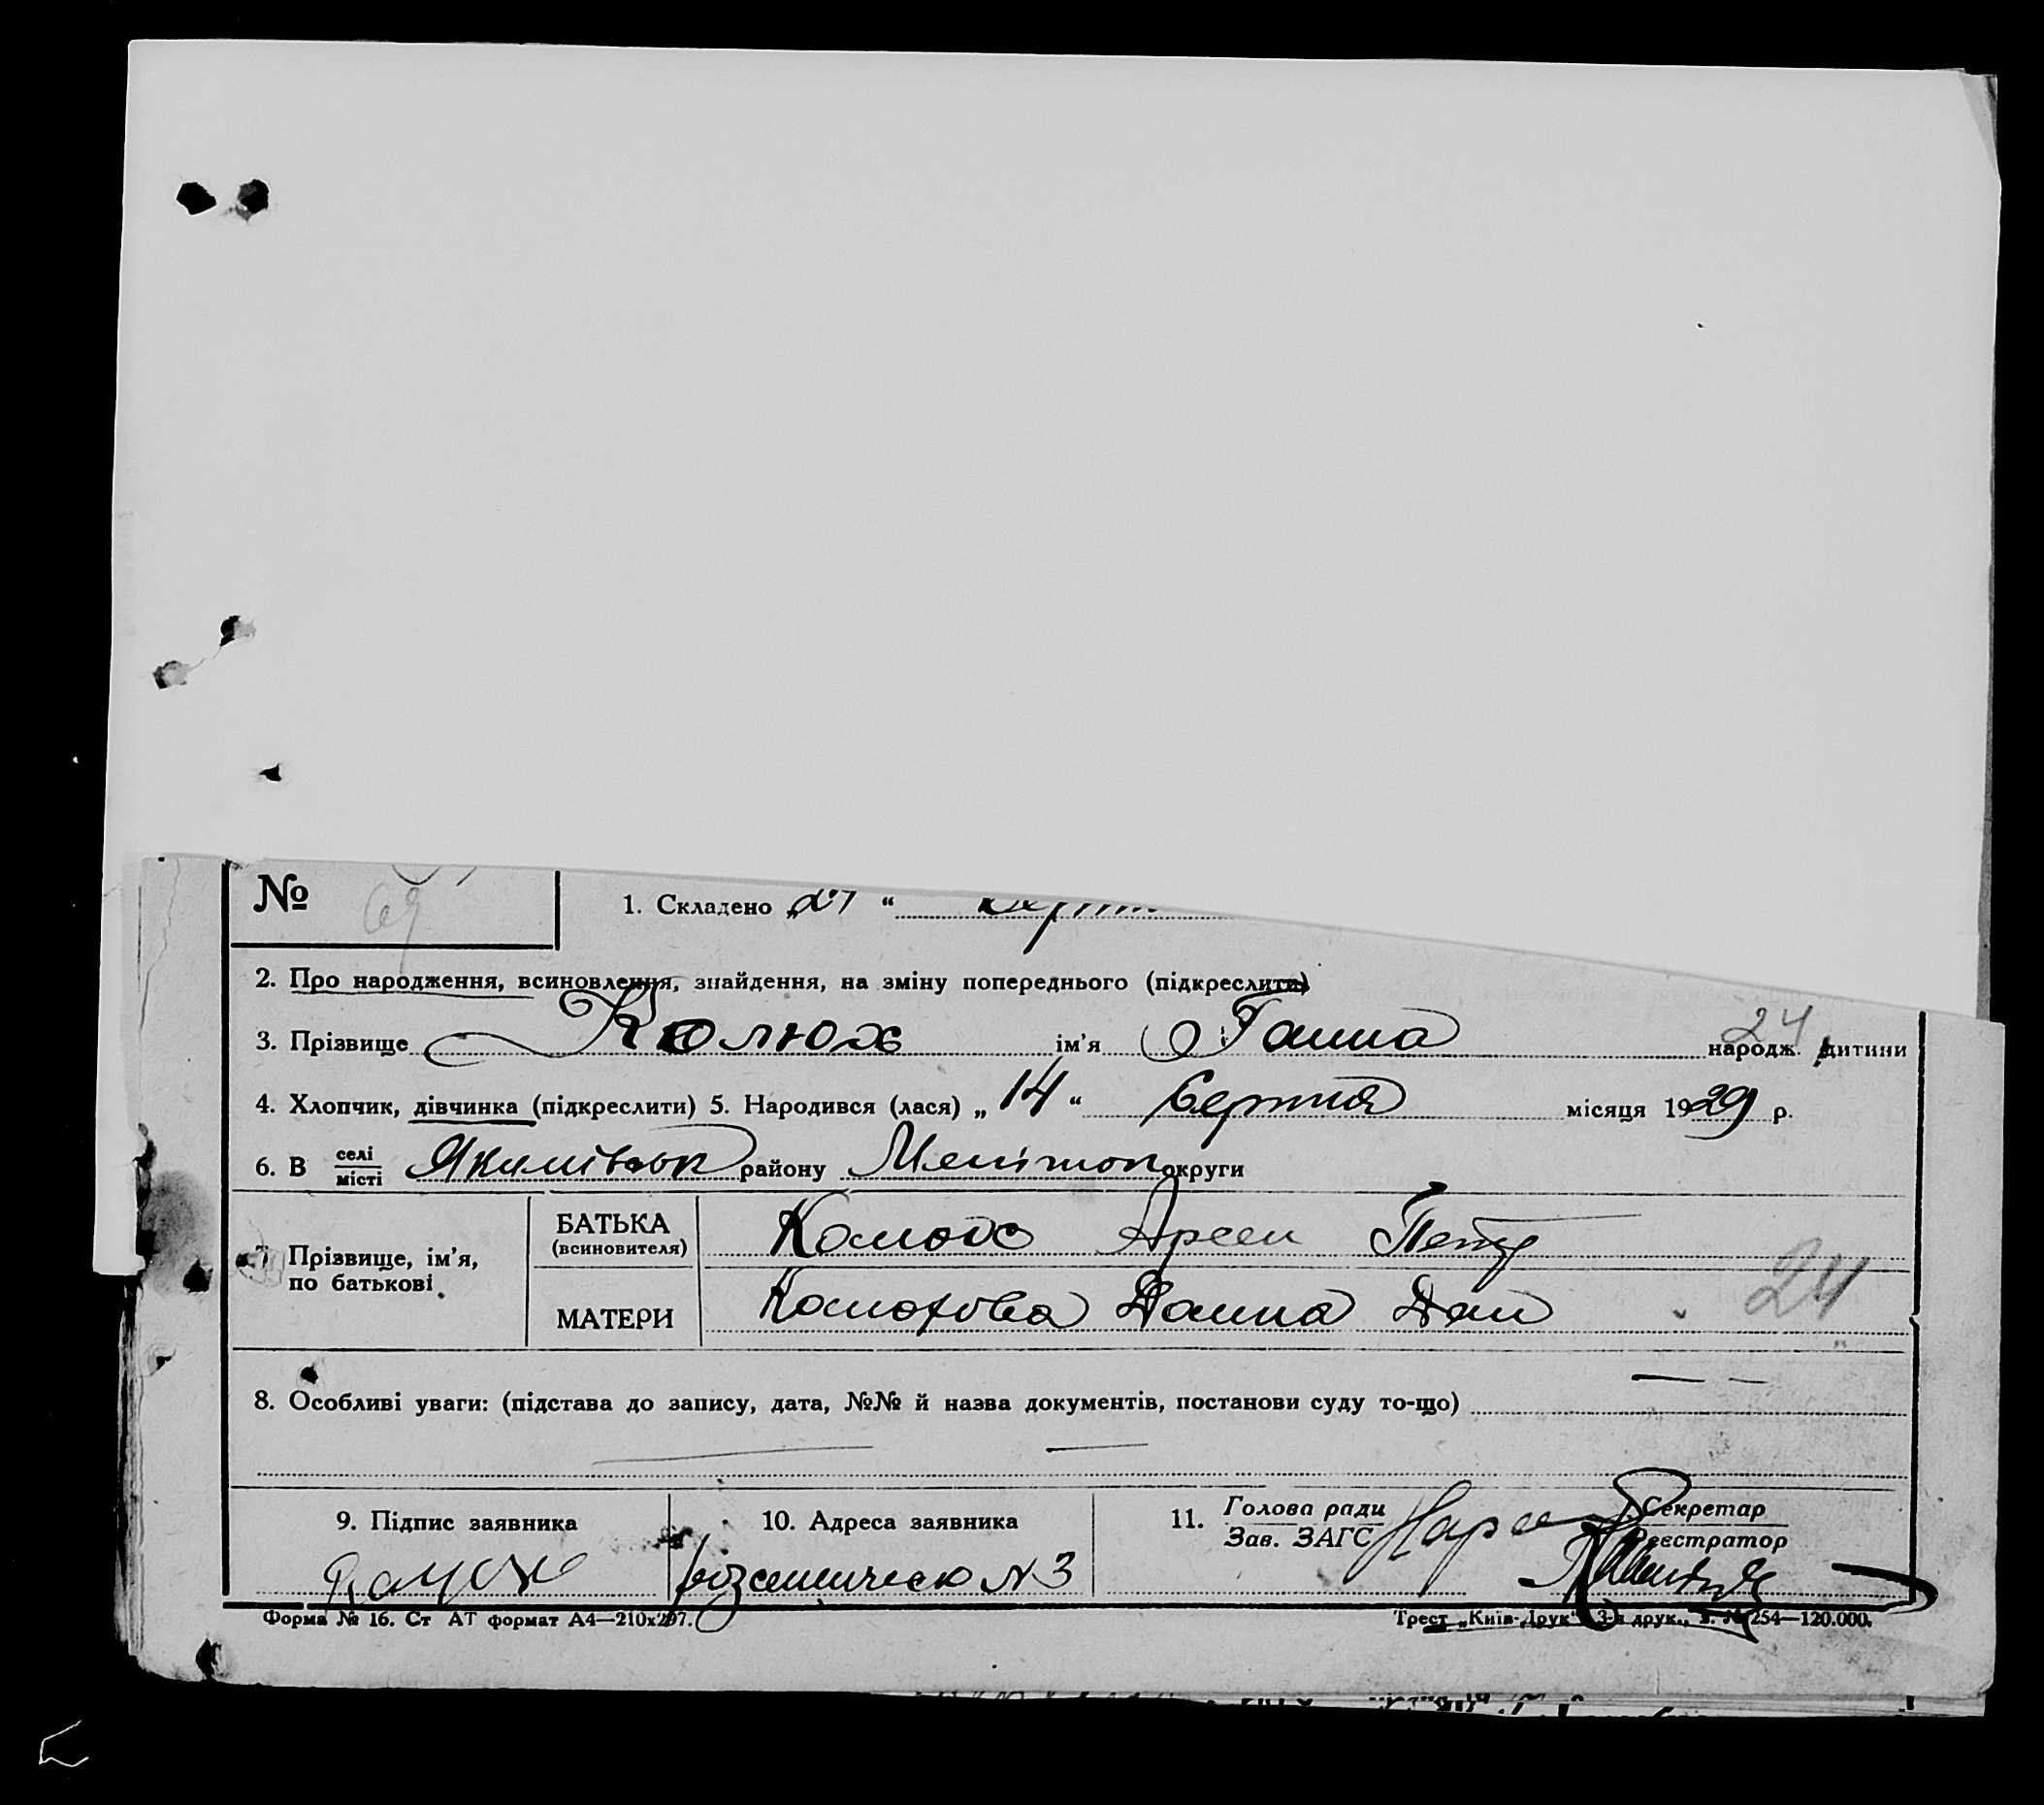 № 69
1. Складено „27 “
2. Про народження, всиновлення, знайдення, на зміну попереднього (підкреслити)
3. Прізвище Колюх ім’я Ганна народж. дитини
24
4. Хлопчик, дівчинка (підкреслити) 5. Народився (лася) „ 14 “ Серпня місяця 1929 р.
6. В селі місті Якимівськ району Меліттоп округи
7 Прізвище, ім’я, по батькові
БАТЬКА (всиновителя) Колюх Арсен Петр
МАТЕРИ Колюхова Ганна Дан
24
8. Особливі уваги: (підстава до запису, дата, №№ й назва документів, постанови суду то-що)
9. Підпис заявника 10. Адреса заявника 11. Голова ради Зав. ЗАГС Секретар Реєстратор
N 3
Форма № 16. Ст АТ формат А4—210х297. Трест „Київ-Друк“ 3-я друк., з. № 254—120.000.